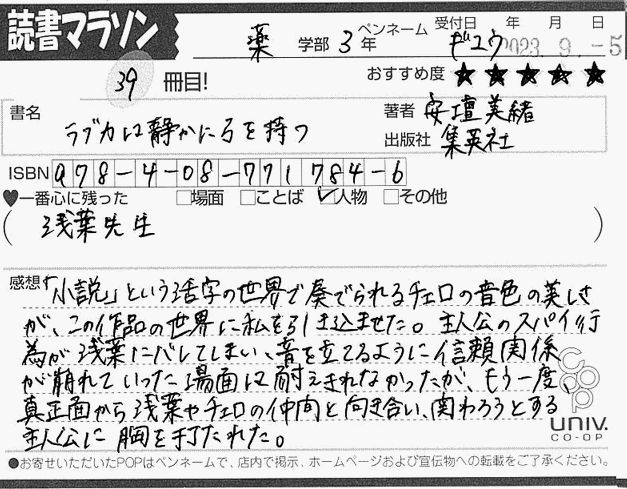 読書マラソン
薬 学部 3 年 ペンネーム ギユウ 受付日 年 月 日 2023.9.-5
39 冊目! おすすめ度 ★★★★★
書名 ラブカは静かに弓を持つ
著者 安壇美緒
出版社 集英社
ISBN 978-4-08-771784-6
♥一番心に残った □場面 □ことば ☑人物 □その他
( 浅葉先生 )
感想 「小説」という活字の世界で奏でられるチェロの音色の美しさ
が、この作品の世界に私を引き込ませた。主人公のスパイ行
為が浅葉にバレてしまい、音を立てるように信頼関係
が崩れていった場面は耐えきれなかったが、もう一度、
真正面から浅葉やチェロの仲間と向き合い、関わろうとする
主人公に胸を打たれた。
coop
UNIV.
CO-OP
●お寄せいただいたPOPはペンネームで、店内で掲示、ホームページおよび宣伝物への転載をご了承ください。